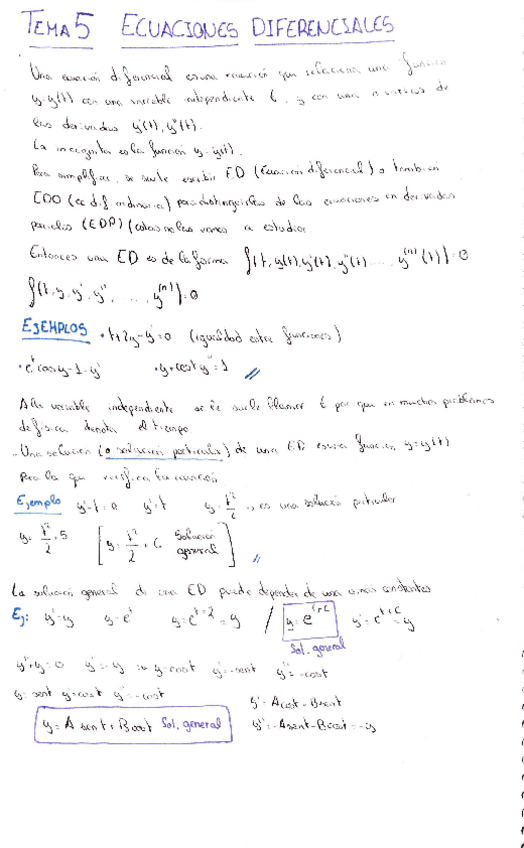 TEMA 5 ECUACIONES DIFERENCIALES
Una ecuación diferencial es una ecuación que relaciona una función
y=y(t) con una variable independiente t, y con una o varias de
las derivadas y'(t), y''(t).
La incognita es la función y=y(t).
Para simplificar, se suele escribir ED (Ecuacion diferencial) o tambien
EDO (ec dif ordinaria) para distinguirlas de las ecuaciones en derivadas
parciales (EDP) (estas no las vamos a estudiar
Entonces una ED es de la forma f(t, y(t), y'(t), y''(t) ..... y⁽ⁿ⁾(t))=0
f(t, y, y', y'', ..., y⁽ⁿ⁾)=0
EJEMPLOS • t+2y-y'=0 (igualdad entre funciones)
• eᵗ cos y-1=y' • y+cos t y''=1
A la variable independiente se le suele llamar t por que en muchos problemas
de física denota el tiempo
- Una solución (o solución particular) de una ED es una función y=y(t)
para la que verifica la ecuación.
Ejemplo y'-t=0 y'=t y=t²/2 es una solució particular
y=t²/2+5 [y=t²/2+C Solución general]
La solución general de una ED puede depender de una o mas constantes
Ej: y'=y y=eᵗ y=eᵗ⁺²=y / y=eᵗ⁺ᶜ y'=eᵗ⁺ᶜ=y
Sol. general
y''+y=0 y''=-y y=cost y'=-sent y''=-cost
y=sent y'=cost
y'=Acost-Bsent
y=Asent+Bcost Sol. general y''=-Asent-Bcost=-y